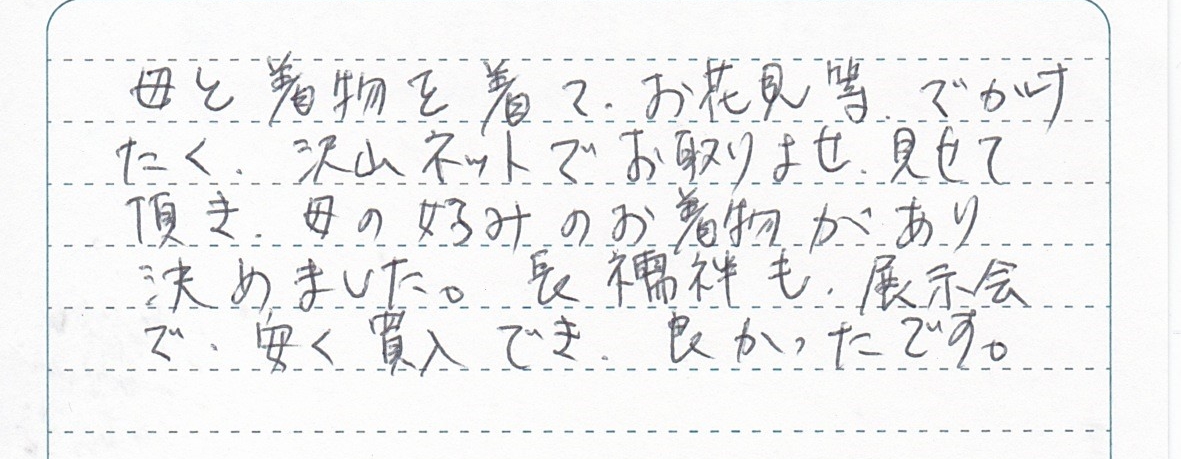 母と着物を着て、お花見等、でかけ
たく、沢山ネットでお取りよせ、見せて
頂き、母の好みのお着物があり
決めました。長襦袢も、展示会
で、安く買入でき、良かったです。